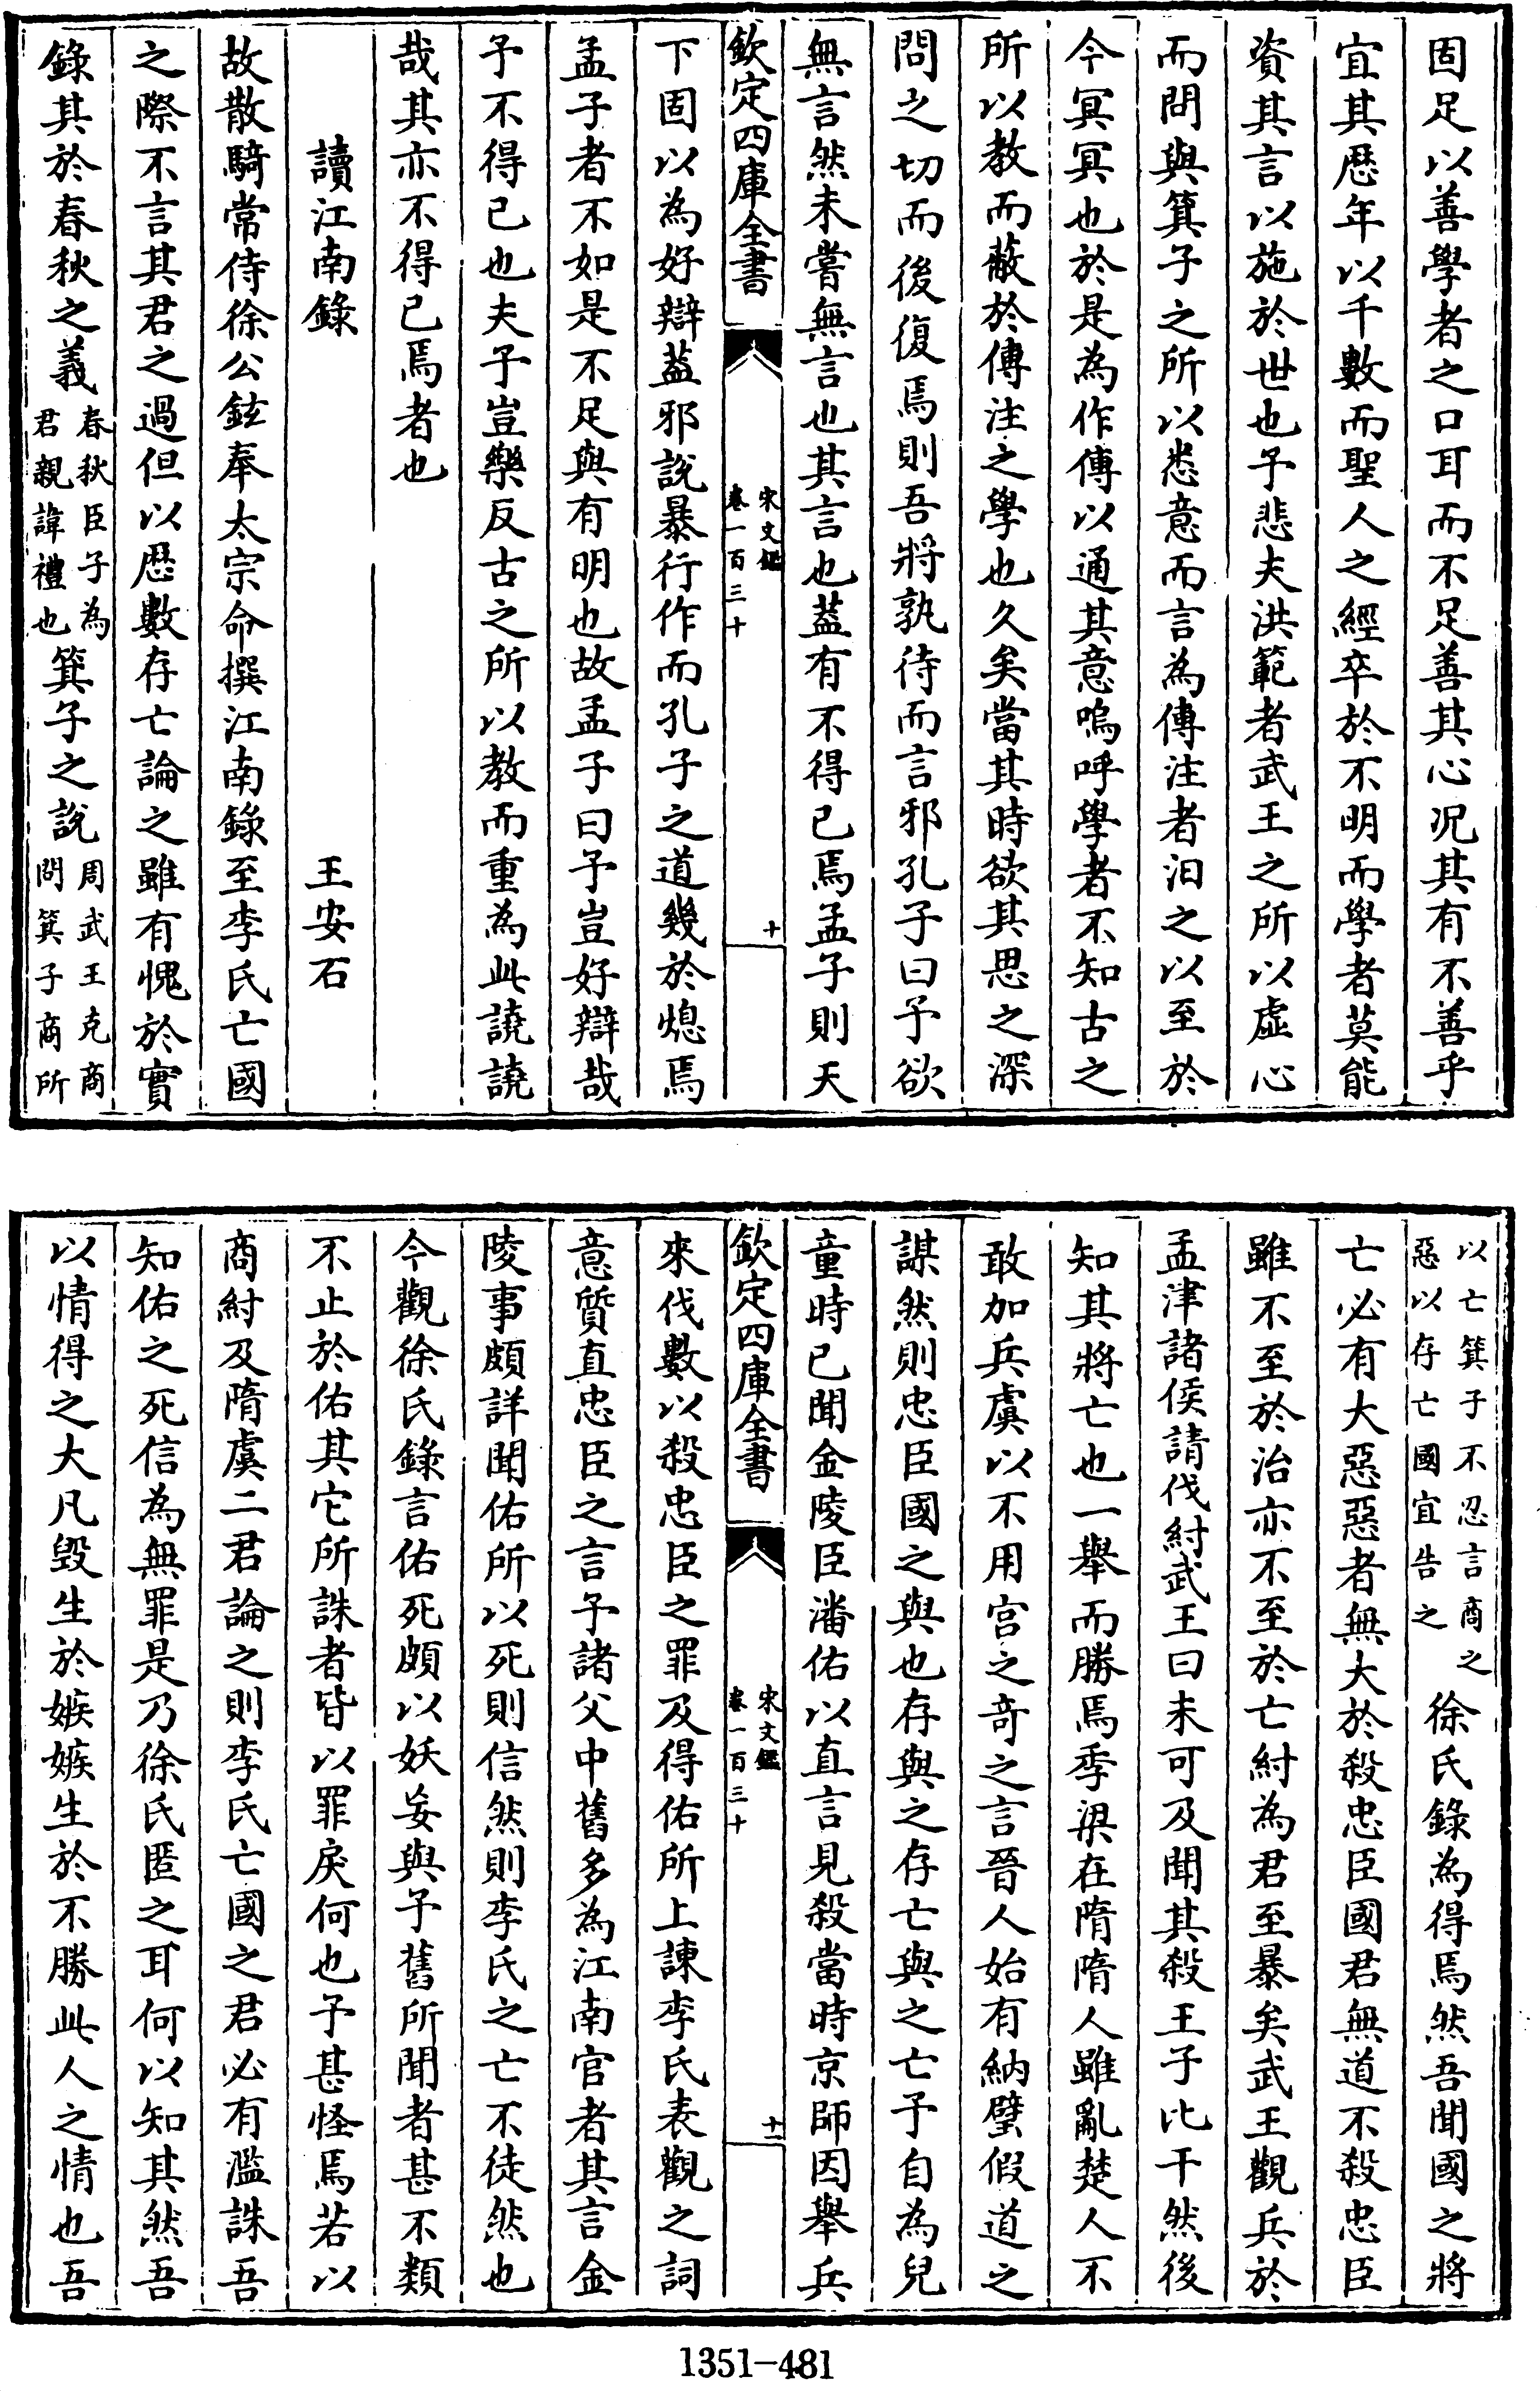 固足以善學者之口耳而不足善其心况其有不善乎
宜其歴年以千數而聖人之經卒於不明而學者莫能
資其言以施於世也予悲夫洪範者武王之所以虚心
而問與箕子之所以悉意而言為傳注者汨之以至於
今冥冥也於是為作傳以通其意嗚呼學者不知古之
所以教而蔽於傳注之學也久矣當其時欲其思之深
問之切而後復焉則吾將孰待而言邪孔子曰予欲
無言然未嘗無言也其言也葢有不得已焉孟子則天
欽定四庫全書
宋文鑑
卷一百三十
十
下固以為好辯葢邪説暴行作而孔子之道幾於熄焉
孟子者不如是不足與有明也故孟子曰予豈好辯哉
予不得已也夫予豈樂反古之所以教而重為此譊譊
哉其亦不得已焉者也
讀江南錄
王安石
故散騎常侍徐公鉉奉太宗命撰江南錄至李氏亡國
之際不言其君之過但以厯數存亡論之雖有愧於實
錄其於春秋之義春秋臣子為君親諱禮也箕子之説周武王克商問箕子商所
以亡箕子不忍言商之惡以存亡國宜告之徐氏錄為得焉然吾聞國之將
亡必有大惡惡者無大於殺忠臣國君無道不殺忠臣
雖不至於治亦不至於亡紂為君至暴矣武王觀兵於
孟津諸侯請伐紂武王曰未可及聞其殺王子比干然後
知其將亡也一舉而勝焉季梁在隋隋人雖亂楚人不
敢加兵虞以不用宮之奇之言晉人始有納璧假道之
謀然則忠臣國之與也存與之存亡與之亡予自為兒
童時已聞金陵臣潘佑以直言見殺當時京師因舉兵
欽定四庫全書
宋文鑑
卷一百三十
十一
來伐數以殺忠臣之罪及得佑所上諌李氏表觀之詞
意質直忠臣之言予諸父中舊多為江南官者其言金
陵事頗詳聞佑所以死則信然則李氏之亡不徒然也
今觀徐氏錄言佑死頗以妖妄與予舊所聞者甚不類
不止於佑其它所誅者皆以罪戾何也予甚怪焉若以
商紂及隋虞二君論之則李氏亡國之君必有濫誅吾
知佑之死信為無罪是乃徐氏匿之耳何以知其然吾
以情得之大凡毁生於嫉嫉生於不勝此人之情也吾
1351-481